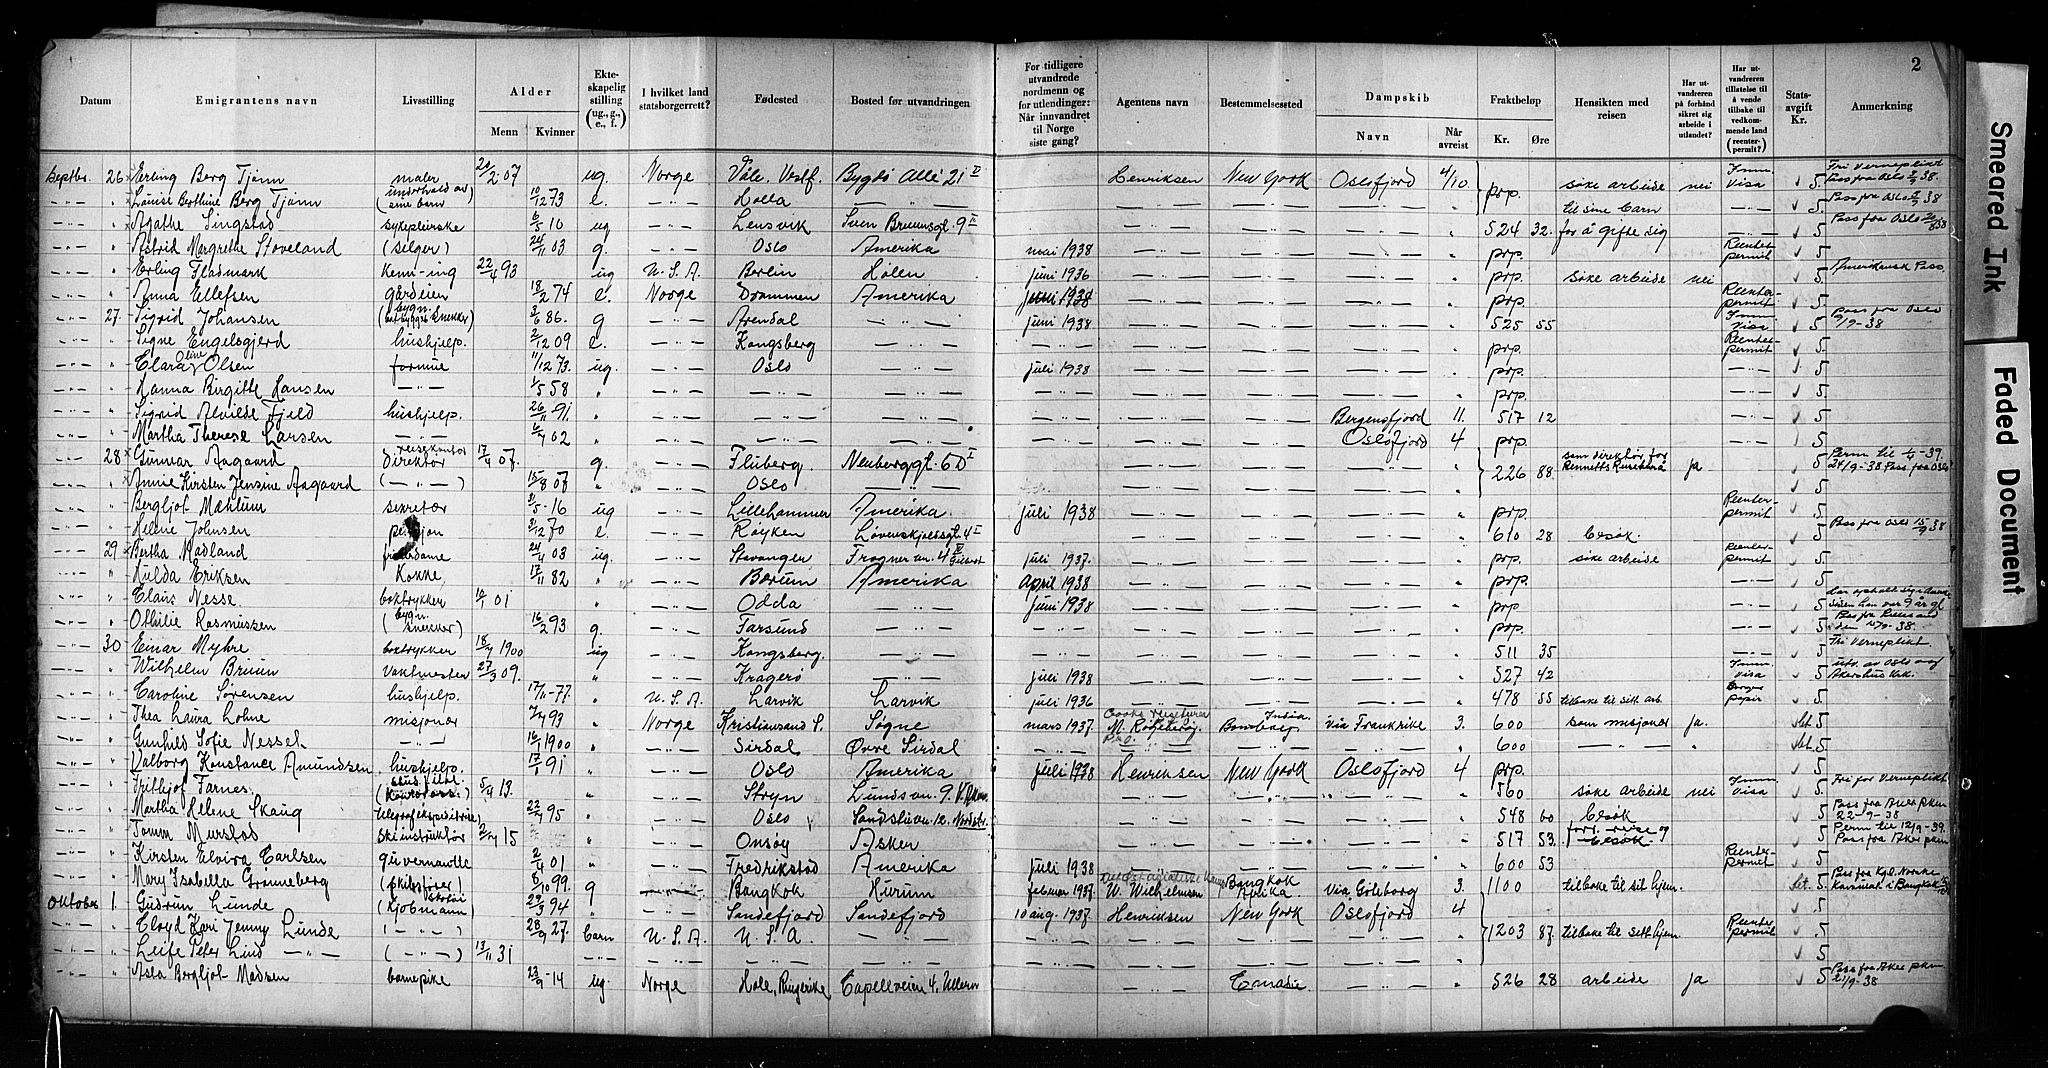 2
Datum | Emigrantens navn | Livsstilling | Alder Menn Kvinner | Ekteskapelig stilling (ug., g., e., f.) | I hvilket land statsborgerrett? | Fødested | Bosted før utvandringen | For tidligere utvandrede nordmenn og for utlendinger: Når innvandret til Norge siste gang? | Agentens navn | Bestemmelsessted | Dampskib Navn Når avreist | Fraktbeløp Kr. Øre | Hensikten med reisen | Har utvandreren på forhånd sikret sig arbeide i utlandet? | Har utvandreren tillatelse til å vende tilbake til vedkommende land (reenterpermit)? | Statsavgift Kr. | Anmerkning
Septbr. 26 Erling Berg Tjønn maler 2 07 ug. Norge Våle, Vestf. Bygdö Allé 21 V Henriksen New York Oslofjord 4/10. prp. søke arbeide nei Imm. Visa 5. Fri Verneplikt Pass fra Oslo 38.
Louise Berthine Berg Tjønn (underhold av sine barn) 10/12 73 e. — Holla — til sine barn 5. Pass fra Oslo 38
Agathe Singstad sykepleierske 6/5 10 ug — Lensvik Sven Bruunsgt. 9 II 524 32. for å gifte sig 5 Pass fra Oslo
Astrid Margrethe Stoveland (selger) 24/11 03 g. — Oslo Amerika mai 1938 prp. Reenter-permit 5
Erling Fladmark kemi-ing 22/4 93 ug U.S.A. Berlin Hølen juni 1936 prp. søke arbeide nei 5. Amerikansk Pass
Anna Ellefsen gårdeien 18/2 74 e. Norge Drammen Amerika juni 1938 prp. Reenter-permit 5
27 Sigrid Johansen 3/6 86. g — Arendal — juni 1938 525 55 Imm. Visa 5 Pass fra Oslo /9-38
Signe Engelsgjerd hushjelp. 2/12 09 e. — Kongsberg — prp. Reenter-permit 5.
Clara Oline Olsen formue 11/12 73. ug. — Oslo — juli 1938 prp. 5
Hanna Birgitte Hansen — 1/5 58 — prp. 5
Sigrid Alvilde Fjeld hushjelp. 26/11 91. — Bergensfjord 11. 517 12 5
Martha Therese Larsen — 02 — Oslofjord 4 prp. 5
28 Gunnar Aagaard Direktør reisekontor 17/4 07. g. — Fluberg. Neuberggt. 6 D I 226 88. som direktør for Bennetts Reisebyrå ja 5 Perm til 39. 24/9-38 Pass fra Oslo
Annie Kirsten Jensine Aagaard (—) 15/8 07 — Oslo — 5
Bergljot Mæhlum sekretær 31/5-16 ug — Lillehammer Amerika juli 1938 prp. Reenter-permit 5.
Helene Johnsen pensjon 31/12 70 e. — Røyken Løvenskjoldsgt. 4 I 610 28 besøk. 5 Pass fra Oslo 15/9 38
29 Bertha Madland 24/4 03 ug. — Stavanger Frognervn. 4 IV juli 1937. prp. søke arbeide Reenter-permit 5.
Hulda Eriksen Kokke, 17/11 82 — Bærum Amerika April 1938 prp. 5
Claus Nesse boktrykker 10/1 01 — Odda — juni 1938 prp 5
Othilie Rasmussen (bygn. snekker) 16/2 93 g. — Farsund — prp. 5
30 Einar Myhre boktrykker 18/7 1900 ug — Kongsberg. — 511 35 5 Fri Verneplikt.
Wilhelm Bruun Vaktmester 27/3 09. — Kragerø — juli 1938 527 42 Imm. Visa 5 utv. av Oslo og Akershus
Caroline Sørensen hushjelp. 17/11-77. U.S.A. Larvik Larvik juli 1936 478 55 tilbake til sitt arb. Borger papir 5
Thea Laura Lohne misjonær 7/7 93 Norge Kristiansand S. Søgne mars 1937. M. Røgeberg. Bombay India via Frankrike 3. 600 som misjonær ja. 5
Gunhild Sofie Nesset — 16/1 1900 — Sirdal Øvre Sirdal — 600 — 5
Valborg Konstance Amundsen hushjelp. 17/1 91 — Oslo Amerika juli 1938 Henriksen New York Oslofjord 4 prp. 5
Frithjof Farnes 5/4 13. — Stryn Lundsvn. 9. V. Aker. 560 søke arbeide nei Imm. Visa 5. Fri for Verneplikt
Martha Helene Skaug telegrafekspeditrise 22/7 95 — Oslo Sandslivn. 12. Nordstr. 548 60 besøk 5 Pass fra Aker pkm 22-9-38
Tomm Murstad Skiinstruktør 2/7 15 — Onsøy Asker 517 53. forr. reise og besøk 5 Perm til 12/9-39. Pass fra Aker pkm
Kirsten Elvira Carlsen guvernante 2/4 01 — Fredrikstad Amerika juli 1938 600 53 Reenter-permit 5
Mary Isabella Grønneberg (skibsfører) 6/10 99. g — Bangkok Hurum februar 1937. W. Wilhelmsen Bangkok Via Göteborg 3. 1100 tilbake til sit hjem. 5. Pas fra Kgl. Norske Konsulat i Bangkok
Oktober 1. Gudrun Lunde (kjøbmann) 29/3 94 — Sandefjord Sandefjord 10 aug. 1937. Henriksen New York Oslofjord 4 5
Cloyd Kari Jenny Lunde (—) 28/9 27. barn U.S.A. U.S.A — 1203 87. tilbake til sitt hjem Reenter permit 5
Leife Peter Lund — (—) 13/11 31 — 5
Asla Bergljot Madsen barnepike 23/9-14 ug. Norge Hole, Ringerike Capellveien 4, Ullern 526 28 arbeide ja 5 Pass fra Aker pkm /9-38
Smeared Ink
Faded Document